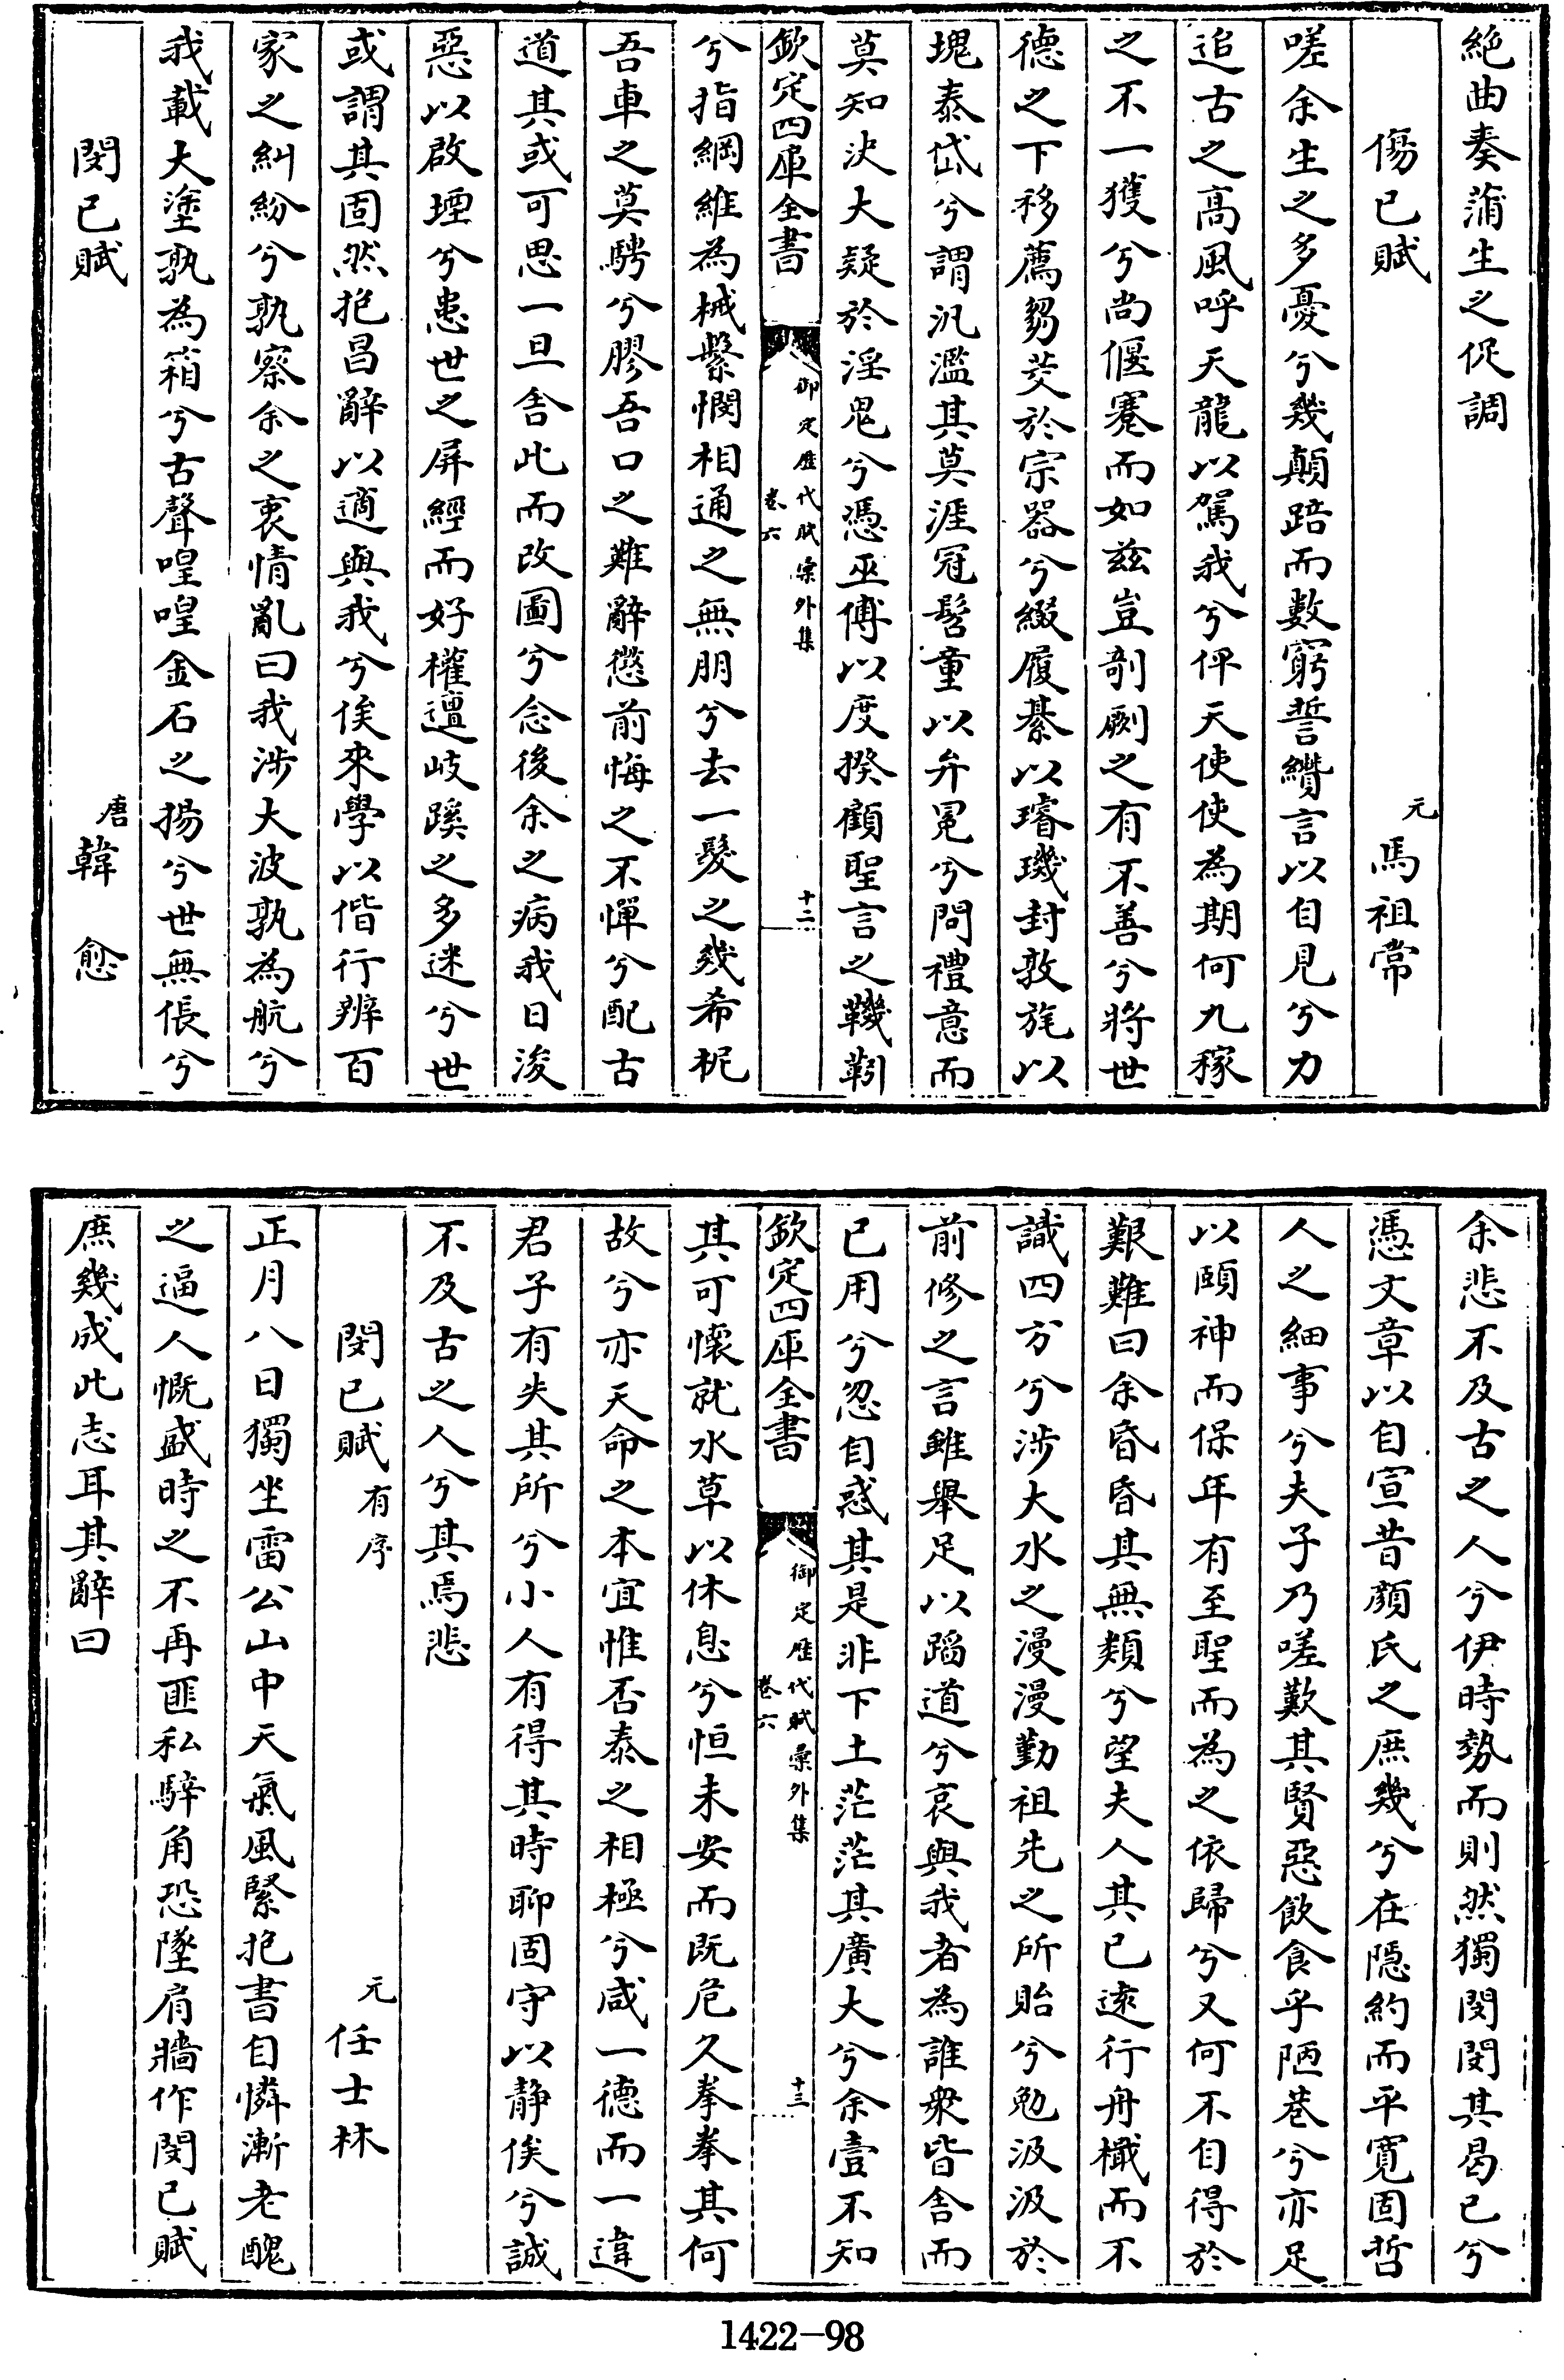 絶曲奏蒲生之促調
傷已賦
元
馬祖常
嗟余生之多憂兮幾顛踣而數窮誓纘言以自見兮力
追古之高風呼天龍以駕我兮俾天使使為期何九稼
之不一獲兮尚偃蹇而如兹豈剞劂之有不善兮將世
德之下移薦芻茭於宗器兮綴履綦以璿璣封敦旄以
塊泰岱兮謂汎濫其莫涯冠髫童以弁冕兮問禮意而
莫知決大疑於淫鬼兮憑巫傅以度揆顧聖言之鞿靷
欽定四庫全書
御定歴代賦彚外集
卷六
十二
兮指綱維為械繫憫相通之無朋兮去一髮之幾希柅
吾車之莫騁兮膠吾口之難辭懲前悔之不憚兮配古
道其或可思一旦舍此而改圖兮念後余之病我日浚
惡以啟堙兮患世之屏經而好權邅岐蹊之多迷兮世
或謂其固然抱昌辭以適與我兮俟來學以偕行辨百
家之糾紛兮孰察余之衷情亂曰我涉大波孰為航兮
我載大塗孰為箱兮古聲喤喤金石之揚兮世無倀兮
閔已賦
唐
韓愈
余悲不及古之人兮伊時勢而則然獨閔閔其曷已兮
憑文章以自宣昔顔氏之庶幾兮在隠約而平寛固哲
人之細事兮夫子乃嗟歎其賢惡飲食乎陋巷兮亦足
以頤神而保年有至聖而為之依歸兮又何不自得於
艱難曰余昏昏其無類兮望夫人其已逺行舟檝而不
識四方兮涉大水之漫漫勤祖先之所貽兮勉汲汲於
前修之言雖舉足以蹈道兮哀與我者為誰衆皆舍而
已用兮忽自惑其是非下土茫茫其廣大兮余壹不知
欽定四庫全書
御定歴代賦彚外集
卷六
十三
其可懷就水草以休息兮恒未安而既危久拳拳其何
故兮亦天命之本宜惟否泰之相極兮咸一德而一違
君子有失其所兮小人有得其時聊固守以静俟兮誠
不及古之人兮其焉悲
閔已賦
有序
元
任士林
正月八日獨坐雷公山中天氣風緊抱書自憐漸老醜
之逼人慨盛時之不再匪私騂角恐墜肩牆作閔已賦
庶幾成此志耳其辭曰
1422—98